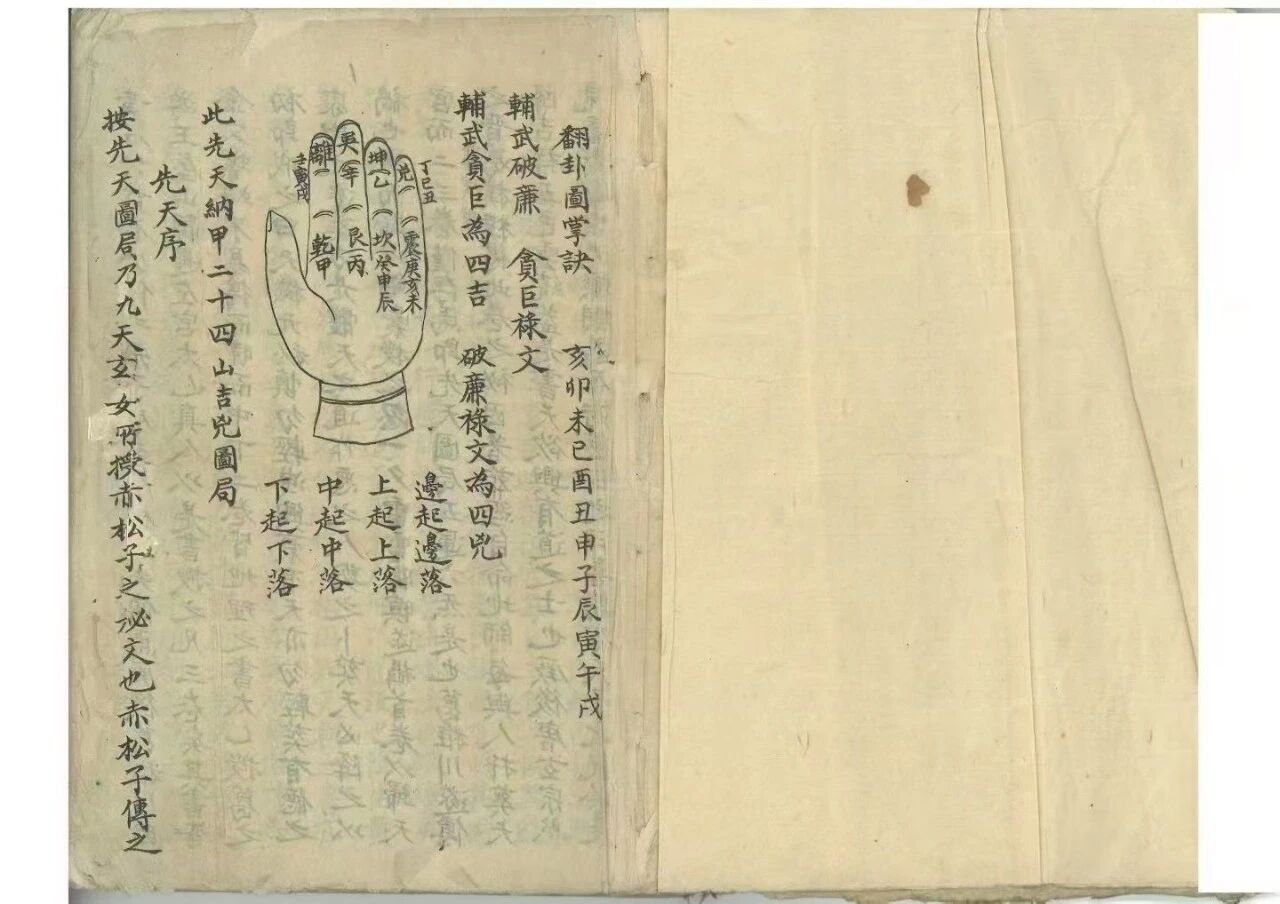 翻卦圖掌訣 亥卯未巳酉丑申子辰寅午戌
輔武破廉 貪巨祿文
輔武貪巨為四吉 破廉祿文為四兇
邊起邊落
上起上落
中起中落
下起下落
丁巳丑
兌
震庚亥未
坤乙
坎癸申辰
巽辛
艮丙
離
壬寅戌
乾甲
此先天納甲二十四山吉兇圖局
先天序
按先天圖局乃九天玄女所授赤松子之祕文也赤松子傳之